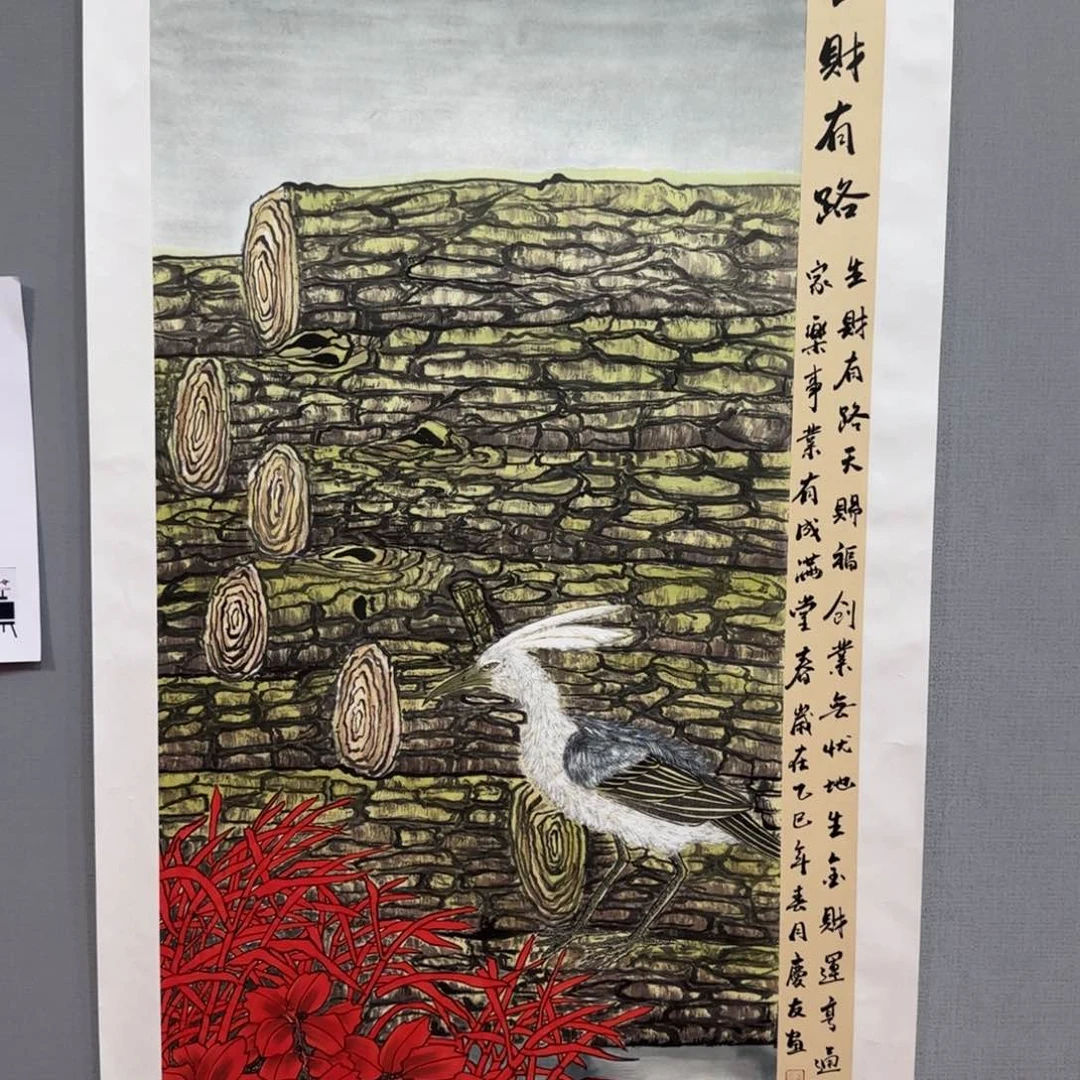 財有路
生財有路天賜福创業無状地生金財運亨通
家樂事業有成滿堂春歲在乙巳年春月慶友画